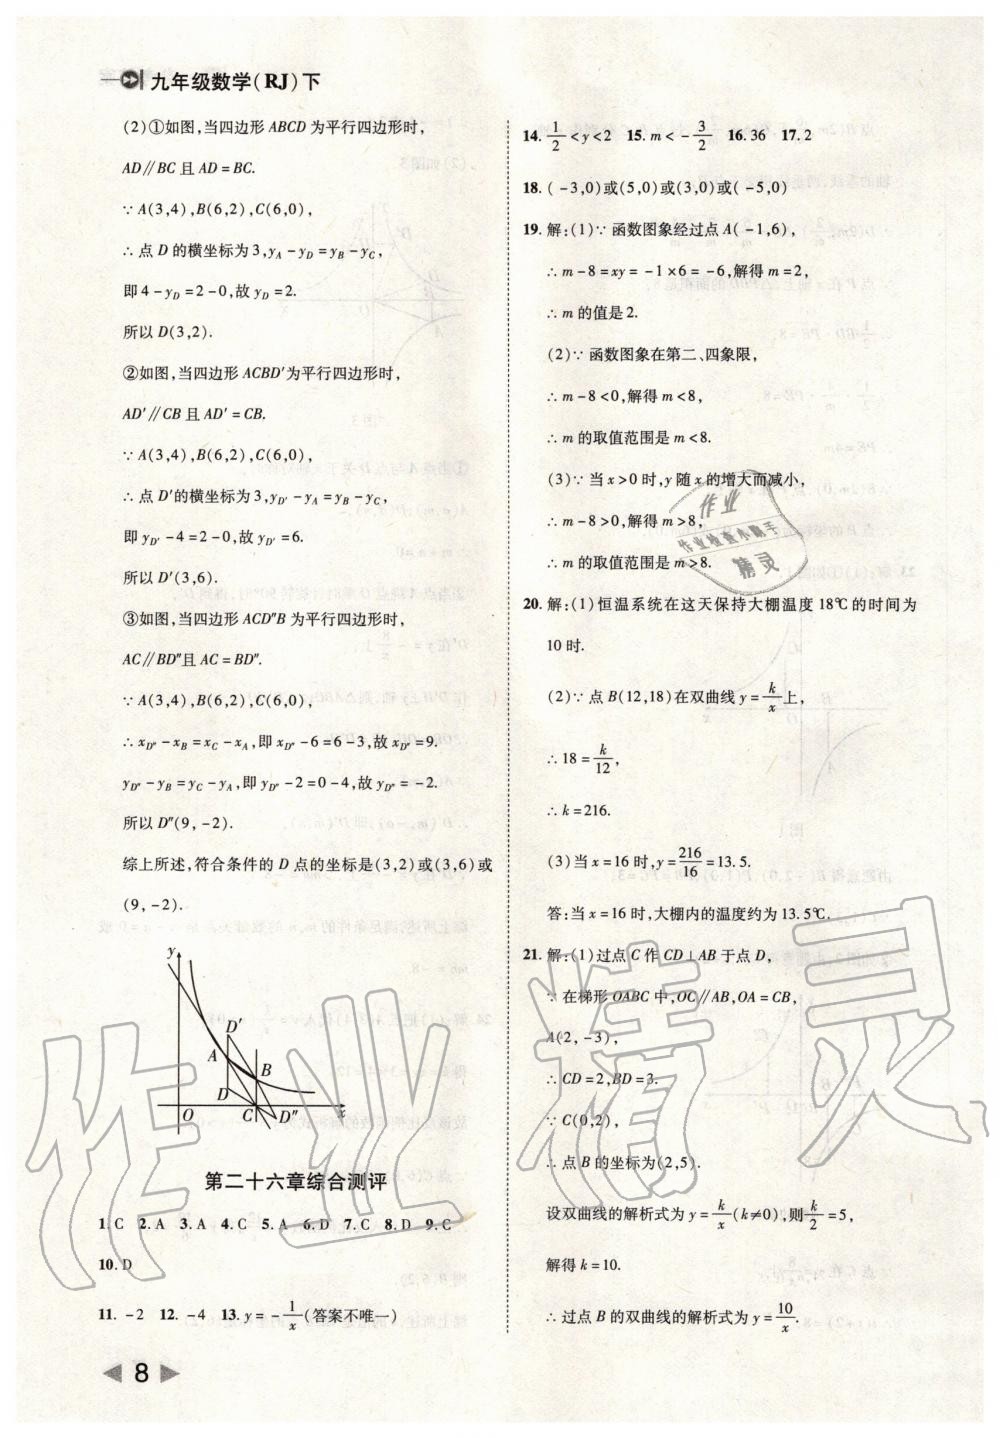 九年级数学(RJ)下
(2)①如图,当四边形 ABCD 为平行四边形时,
AD∥BC 且 AD = BC.
∵ A(3,4),B(6,2),C(6,0),
∴ 点 D 的横坐标为 3,y_A - y_D = y_B - y_C,
即 4 - y_D = 2 - 0,故 y_D = 2.
所以 D(3,2).
②如图,当四边形 ACBD′为平行四边形时,
AD′∥CB 且 AD′ = CB.
∵ A(3,4),B(6,2),C(6,0),
∴ 点 D′的横坐标为 3,y_D′ - y_A = y_B - y_C,
即 y_D′ - 4 = 2 - 0,故 y_D′ = 6.
所以 D′(3,6).
③如图,当四边形 ACD″B 为平行四边形时,
AC∥BD″且 AC = BD″.
∵ A(3,4),B(6,2),C(6,0),
∴ x_D″ - x_B = x_C - x_A,即 x_D″ - 6 = 6 - 3,故 x_D″ = 9.
y_D″ - y_B = y_C - y_A,即 y_D″ - 2 = 0 - 4,故 y_D″ = -2.
所以 D″(9, -2).
综上所述,符合条件的 D 点的坐标是(3,2)或(3,6)或
(9, -2).
y
D′
A
B
D
O
C
D″
x
第二十六章综合测评
1. C 2. A 3. A 4. C 5. A 6. D 7. C 8. D 9. C
10. D
11. -2 12. -4 13. y = -1/x(答案不唯一)
8
14. 1/2 < y < 2 15. m < -3/2 16. 36 17. 2
18. ( -3,0)或(5,0)或(3,0)或( -5,0)
19. 解:(1)∵ 函数图象经过点 A( -1,6),
∴ m - 8 = xy = -1 × 6 = -6,解得 m = 2,
∴ m 的值是 2.
(2)∵ 函数图象在第二、四象限,
∴ m - 8 < 0,解得 m < 8,
∴ m 的取值范围是 m < 8.
(3)∵ 当 x > 0 时,y 随 x 的增大而减小,
∴ m - 8 > 0,解得 m > 8,
∴ m 的取值范围是 m > 8.
20. 解:(1)恒温系统在这天保持大棚温度 18℃的时间为
10 时.
(2)∵ 点 B(12,18)在双曲线 y = k/x 上,
∴ 18 = k/12,
∴ k = 216.
(3)当 x = 16 时,y = 216/16 = 13.5.
答:当 x = 16 时,大棚内的温度约为 13.5℃.
21. 解:(1)过点 C 作 CD⊥AB 于点 D,
∵ 在梯形 OABC 中,OC∥AB,OA = CB,
A(2, -3),
∴ CD = 2,BD = 3.
∵ C(0,2),
∴ 点 B 的坐标为(2,5).
设双曲线的解析式为 y = k/x(k≠0),则 k/2 = 5,
解得 k = 10.
∴ 过点 B 的双曲线的解析式为 y = 10/x.
作业
作业检查小助手
精灵
作业精灵